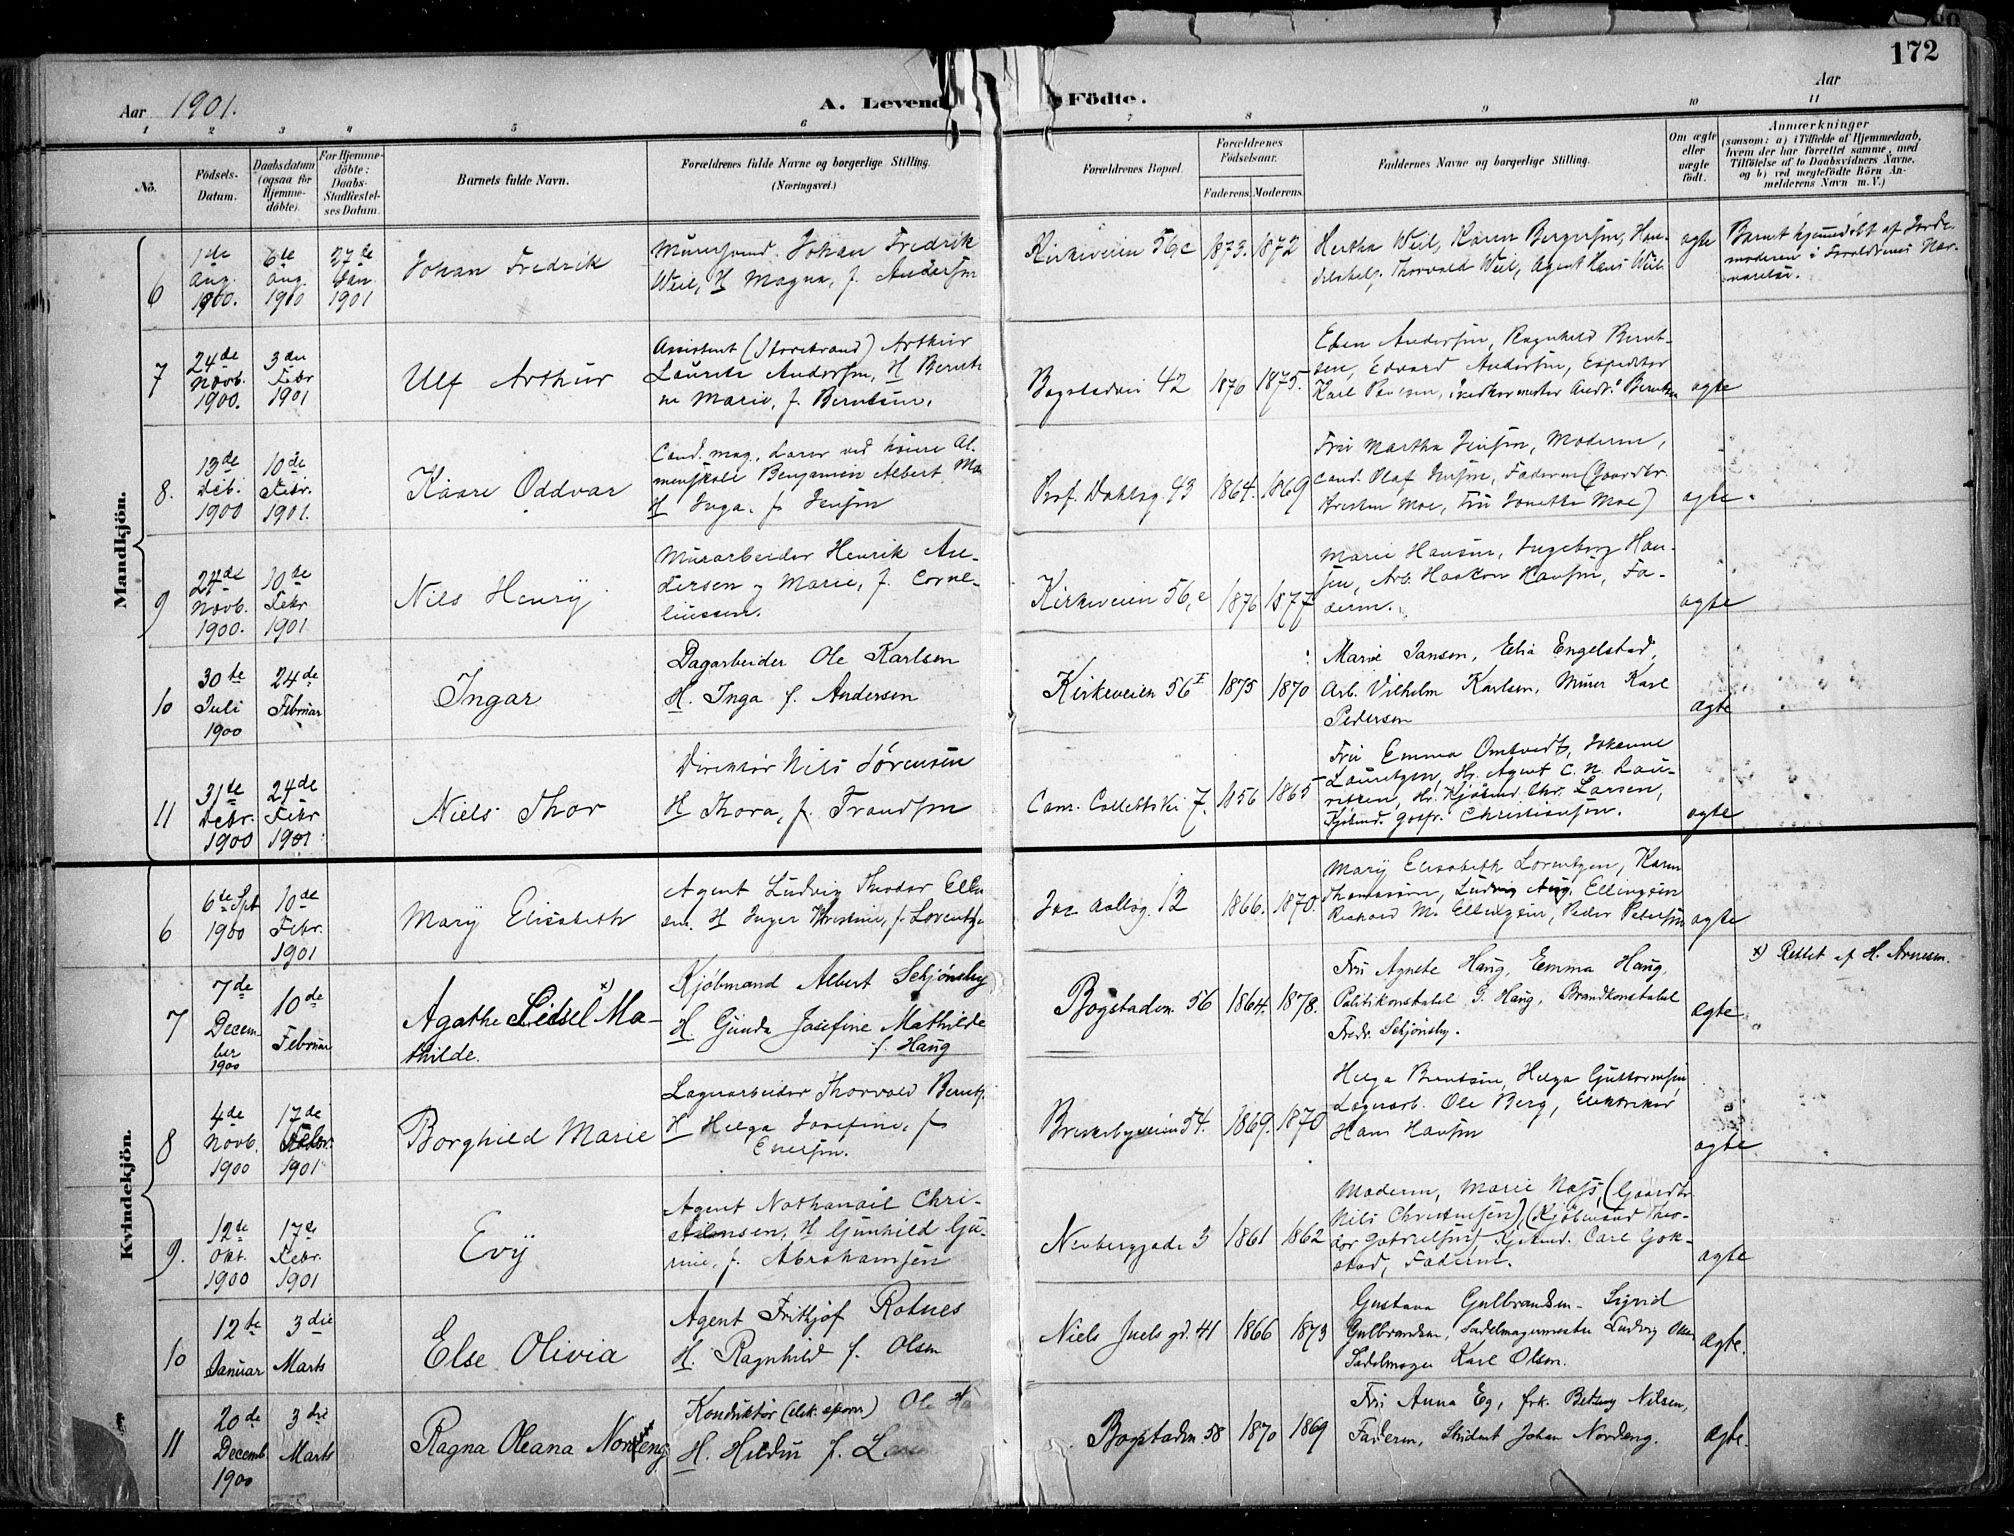 172
Aar 1901.
A. Levend Födte.
Aar
1 2 3 4 5 6 7 8 9 10 11
No.
Födsels-Datum.
Daabsdatum (ogsaa for Hjemme-döbte).
For Hjemme-döbte: Daabs-Stadfæstel-ses Datum.
Barnets fulde Navn.
Forældrenes fulde Navne og borgerlige Stilling.
(Næringsvei.)
Forældrenes Bopæl.
Forældrenes Födselsaar.
Faderens. Moderens.
Faddernes Navne og borgerlige Stilling.
Om ægte eller uægte födt.
Anmærkninger
(saasom: a) i Tilfælde af Hjemmedaab,
hvem der har forrettet samme, med
Tilföielse af to Daabsvidners Navne,
og b) ved uegtefödte Börn An-
melderens Navn m. V.)
Mandkjön.
6
1de Aug. 1900.
6te Aug. 1900
27de Jan 1901
Johan Fredrik
Murersvend Johan Fredrik
Weil, H Magna, f. Andersen
Kirkeveien 56c 1873. 1872
Hertha Weil, Karen Bergersen, Han-
delsbetj. Thorvald Weil, Agent Hans Weil
ægte
Barnet hjemmedöbt af Jorde-
moderen i Forældrenes Nær-
værelse.
7
24de Novb. 1900.
3die Febr 1901
Ulf Arthur
Assistent (Storebrand) Arthur
Laurits Andersen, H Bernti-
ne Marie, f. Berntsen.
Bogstadvei 42 1876 1875.
Andersen, Ragnhild Bernt-
sen, Edvard Andersen, Expeditør
Karl
ægte
8.
13de Deb. 1900
10de Febr. 1901.
Kaare Oddvar
Cand. mag. Lærer ved höiere Al-
menskole Benjamin Albert Moe
H Inga, f. Jensen
Prof. Dahlsg. 43 1864. 1869
Fru Martha Jensen, Moderen,
Cand. Olaf Jensen, Faderen (Gaardbr.
Kristen Moe, Fru Jonetta Moe)
ægte
9
24de Novb. 1900.
10de Febr 1901
Nils Henrÿ
Murarbeider Henrik An-
dersen og Marie, f. Corne-
liussen.
Kirkeveien 56,c 1876 1877
Marie Hansen, Ingeborg Han-
sen, Arb. Haakon Hansen, Fa-
deren.
ægte
10
30te Juli 1900
24de Februar
Ingar
Dagarbeider Ole Karlsen
H. Inga f. Andersen
Kirkeveien 56 I 1875 1870
Marie Jansen, Elia Engelstad,
Arb. Vilhelm Karlsen, Murer Karl
Pedersen
ægte
11
31te Debr. 1900
24de Febr 1901
Niels Thor
Direktör Nils Sörensen
H Thora, f. Frandsen
Cam. Collettsvei 7. 1856 1865
Fru Emma Omtvedt, Johanne
Lauritzen, Hr. Agent C. N. Lau-
ritzen, Hr. Kjöbmd. Chr. Larsen,
Kjöbmd. Christiansen.
ægte
Kvindekjön.
6
6te Spt 1900
10de Febr. 1901
Marÿ Elisabeth
Agent Ludvig Theodor Elling-
sen. H Inger Kristine, f. Lorentze
Jac Aallsg. 12 1866. 1870.
Marÿ Elisabeth Lorentzen, Karen
Thomassen, Ludvig Aug. Ellingsen
Rickard M. Ellingsen, Peder Petersen
ægte
7
7de Decem-ber 1900
10de Februar
Agathe Sidsel x) Ma-
thilde.
Kjöbmand Albert Schjönsby
H. Gunda Josefine Mathilde
f. Haug
Bogstadv. 56 1864. 1878.
Fru Agnete Haug, Emma Haug,
Politikonstabel G. Haug, Brandkonstabel
Fredr. Schjönsby.
ægte
x) Rettet af H. Arnesen.
8
4de Novb. 1900
17de Febr. 1901
Borghild Marie
Lagerarbeider Thorvald Bernts
H Helga Josefine, f.
Eversen.
Briskebyveien 54. 1869. 1870
Helga Berntsen, Helga Guttormsen,
Lagerarb. Ole Berg, Elektriker
Hans Hansen
ægte
9.
12de Okt. 1900
17de Febr. 1901
Evÿ
Agent Nathanael Chri-
stensen, H Gunhild Gu-
rine, f. Abrahamsen
Neuberggade 3 1861 1862
Moderen, Marie Næss, (Gaardbr.
Nils Christensen), (Kjöbmand Theo-
dor Gabrielsen) Carl Gok-
stad, Faderen.
ægte
10
12te Januar
3die Marts
Else Olivia
Agent Frithjof Rotnes
H. Ragnhild f. Olsen
Niels Juels gd. 41 1866 1873
Gustava Gulbrandsen, Sigrid
Gulbrandsen, Sadelmagermester Ludvig Olsen
Sadelmager Karl Olsen.
ægte.
11
20de Decemb 1900
3die Marts
Ragna Oleana Nordeng
Konduktör (elek. sporv.) Ole
H. Hilda f.
Bogstadv. 58 1870 1869
Fru Anna Eg, frk. Betzy Nilsen,
Faderen, Student Johan Nordeng.
ægte.